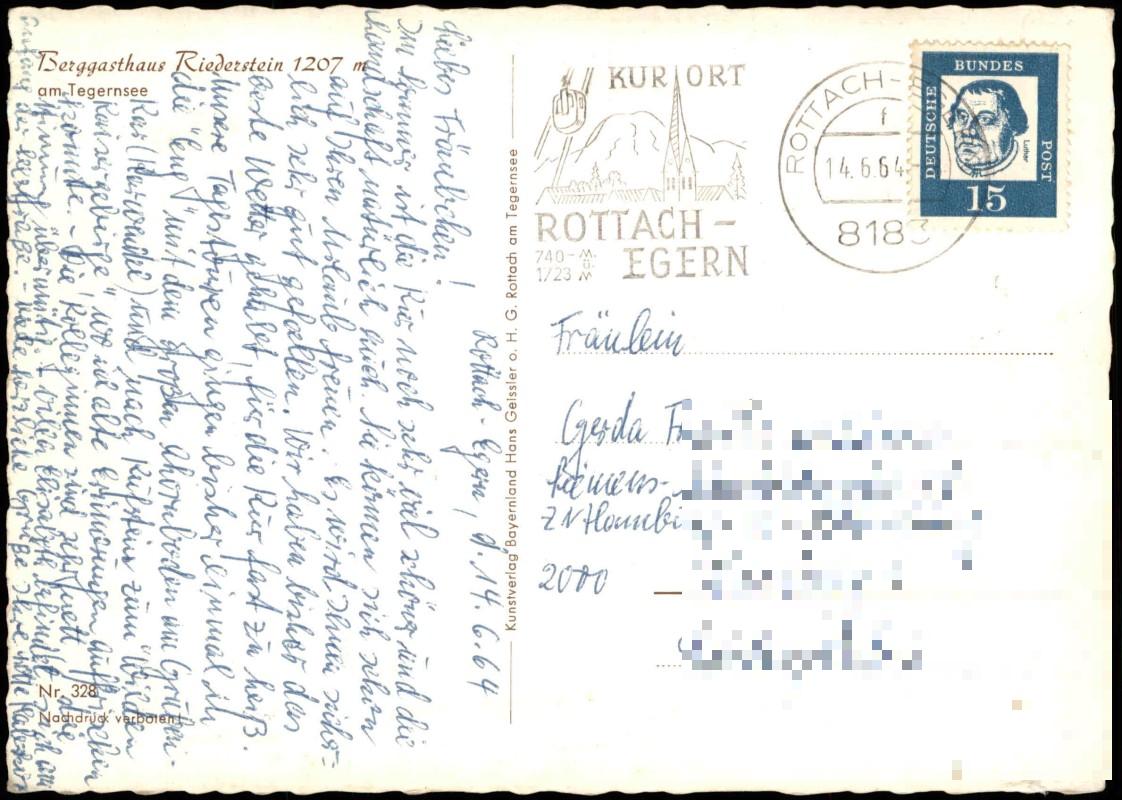 Berggasthaus Riederstein 1207 m
am Tegernsee
Rottach-Egern, d. 14.6.64
Liebes Fräulichen!
Im Sommer ist die Kur noch sehr viel schöner und die
Landschaft natürlich auch. Sie können sich schon
auf Ihren Urlaub freuen. Es wird Ihnen sicher-
lich sehr gut gefallen. Wir haben bisher das
beste Wetter gehabt, für die Kur fast zu heiß.
Unsere Tagestouren gingen bisher einmal in
die "Eng" mit dem großen Ahornboden im Grüßen-
Kar (Karwendel) und nach Kufstein zum "Wilden
Kaisergebirge", wo ich alte Erinnerungen auffrischen
konnte. - Die Kolleginnen sind sehr nett, die
Stimmung "übermütig"
Viele herzliche Grüße Ihre
Nr. 328
Nachdruck verboten!
Kunstverlag Bayernland Hans Geissler o. H. G. Rottach am Tegernsee
KURORT
ROTTACH-
EGERN
740-
1723
M.
ü.
M
ROTTACH-
14.6.64-
8183
DEUTSCHE
BUNDES
POST
Luther
15
Fräulein
Gerda
Siemens-
ZN
2000